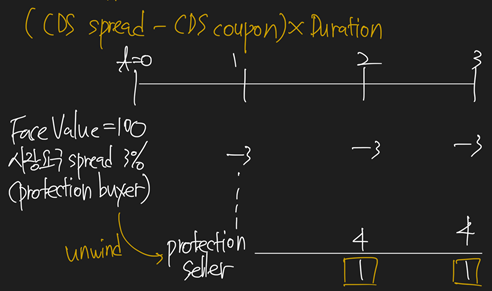 (CDS spread - CDS coupon)×Duration
t=0 1 2 3
Face Value=100
시장요구 spread 3%
(protection buyer)
-3 -3 -3
unwind
protection seller
4 4
1 1